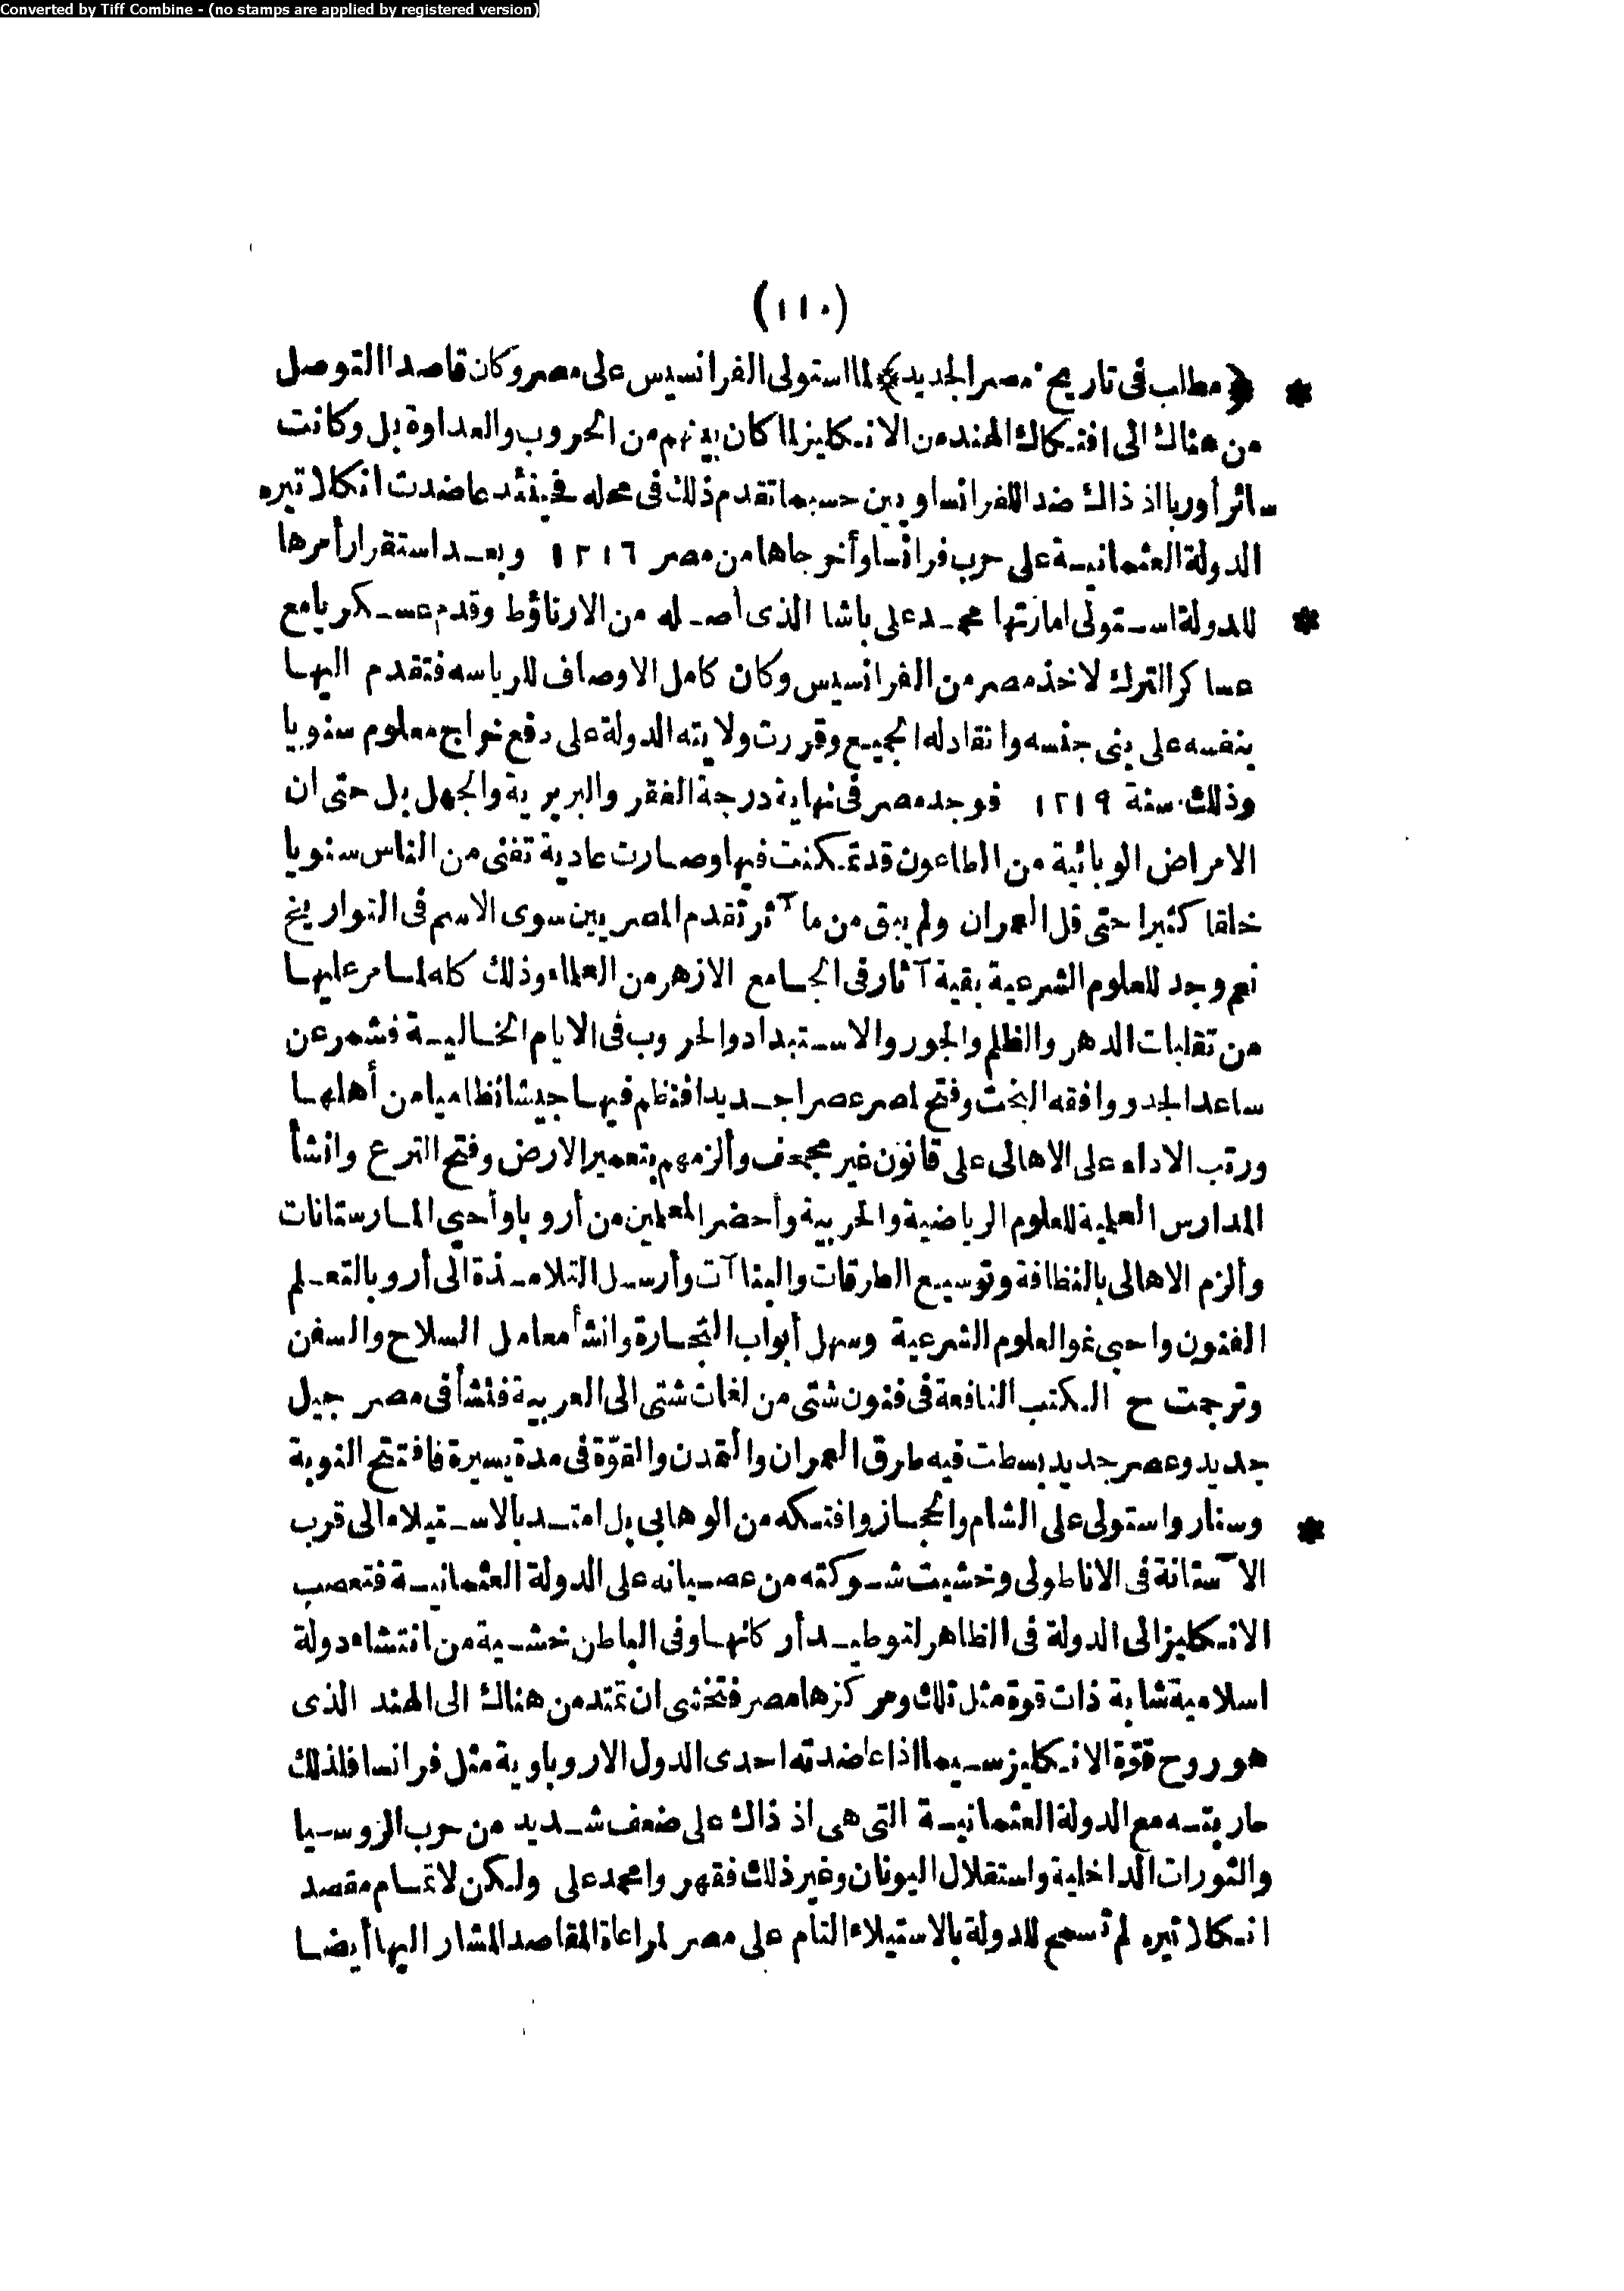 Converted by Tiff Combine - (no stamps are applied by registered version)
(١١٠)
* ﴿مطلب فى تاريخ مصر الجديد﴾ لما استولى الفرانسيس على مصر وكان قاصدا التوصل
من هناك الى افتكاك الهند من الانكليز لما كان بينهم من الحروب والعداوة بل وكانت
سائر أوربا اذ ذاك ضد اللفرانساويين حسبما تقدم ذلك فى محله فحينئذ عاضدت انكلاتيره
الدولة العثمانية على حرب فرانسا وأخرجاها من مصر ١٢١٦ وبعد استقرار أمرها
* للدولة استولى امارتها محمد على باشا الذى أصله من الارناؤط وقدم عسكريا مع
عساكر الترك لاخذ مصر من الفرانسيس وكان كامل الاوصاف للرياسه فتقدم اليها
بنفسه على بنى جنسه وانقادله الجميع وقررت ولايته الدولة على دفع خراج معلوم سنويا
وذلك سنة ١٢١٩ فوجد مصر فى نهاية درجة الفقر والبربرية والجهل بل حتى ان
الامراض الوبائية من الطاعون قد تمكنت فيها وصارت عادية تفنى من الناس سنويا
خلقا كثيرا حتى قل العمران ولم يبق من مآثر تقدم المصريين سوى الاسم فى التواريخ
نعم وجد للعلوم الشرعية بقية آثار فى الجامع الازهر من العلماء وذلك كله لما مر عليها
من تقلبات الدهر والظلم والجور والاستبداد والحروب فى الايام الخالية فشمر عن
ساعد الجد ووافقه البخت وفتح لمصر عصرا جديدا فنظم فيها جيشا نظاميا من أهلها
ورتب الاداء على الاهالى على قانون غير مجحف وألزمهم بتعمير الارض وفتح الترع وانشأ
المدارس العلمية للعلوم الرياضية والحربية وأحضر المعلمين من أروبا وأحيى المارستانات
وألزم الاهالى بالنظافة وتوسيع الطرقات والبناآت وأرسل التلامذة الى أروبا لتعلم
الفنون واحيى نمو العلوم الشرعية وسهل أبواب التجارة وانشأ معامل السلاح والسفن
وترجمت ح الكتب النافعة فى فنون شتى من لغات شتى الى العربية فنشأ فى مصر جيل
جديد وعصر جديد بسطت فيه طرق العمران والتمدن والقوّة فى مدة يسيرة فافتتح النوبة
* وسنار واستولى على الشام والحجاز وافتكه من الوهابى بل امتد بالاستيلاء الى قرب
الآستانة فى الاناطولى وخشيت شوكته من عصيانه على الدولة العثمانية فتعصب
الانكليز الى الدولة فى الظاهر لتوطيد أركانها وفى الباطن خشية من انتشاء دولة
اسلامية شابة ذات قوة مثل تلك ومركزها مصر فتخشى ان تمتد من هناك الى الهند الذى
هو روح قوّة الانكليز سيما اذا عاضدته احدى الدول الاروباوية مثل فرانسا فلذلك
حاربته مع الدولة العثمانية التى هى اذ ذاك على ضعف شديد من حرب الروسيا
والثورات الداخلية واستقلال اليونان وغير ذلك فقهروا محمد على ولكن لاتمام مقصد
انكلاتيره لم تسمح للدولة بالاستيلاء التام على مصر لمراعاة المقاصد المشار اليها أيضا